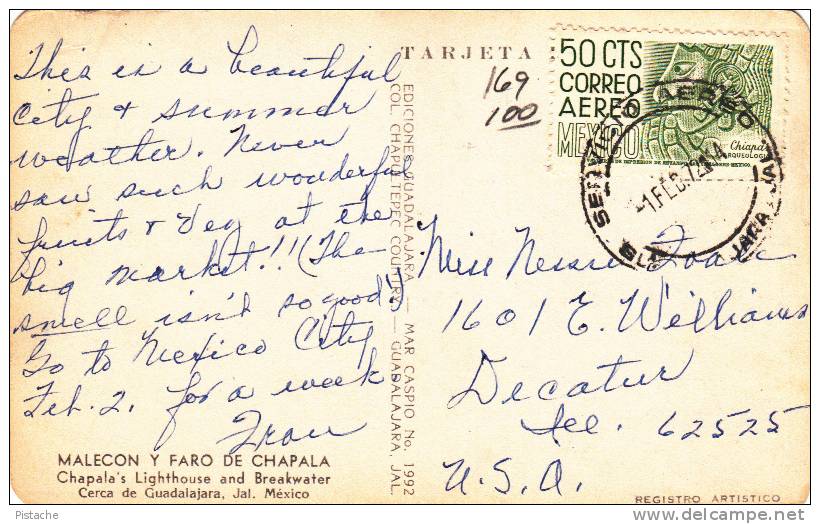 This is a beautiful
city & summer
weather. Never
saw such wonderful
fruits & veg at the
big market!! (The
smell isn't so good!)
Go to Mexico City
Feb. 2. for a week
Fran
MALECON Y FARO DE CHAPALA
Chapala's Lighthouse and Breakwater
Cerca de Guadalajara, Jal. México
TARJETA
EDICIONES GUADALAJARA. — MAR CASPIO No. 1992
COL. CHAPULTEPEC COUNTRY. — GUADALAJARA, JAL.
169
100
50 CTS
CORREO
AEREO
MEXICO
Chiapas
ARQUEOLOGIA
SERVICIO AEREO
-1.FEB.72
JARA JAL
Miss
1601 E. Williams
Decatur
Ill. 62525
U.S.A.
REGISTRO ARTISTICO
Pistache
delcampe.net